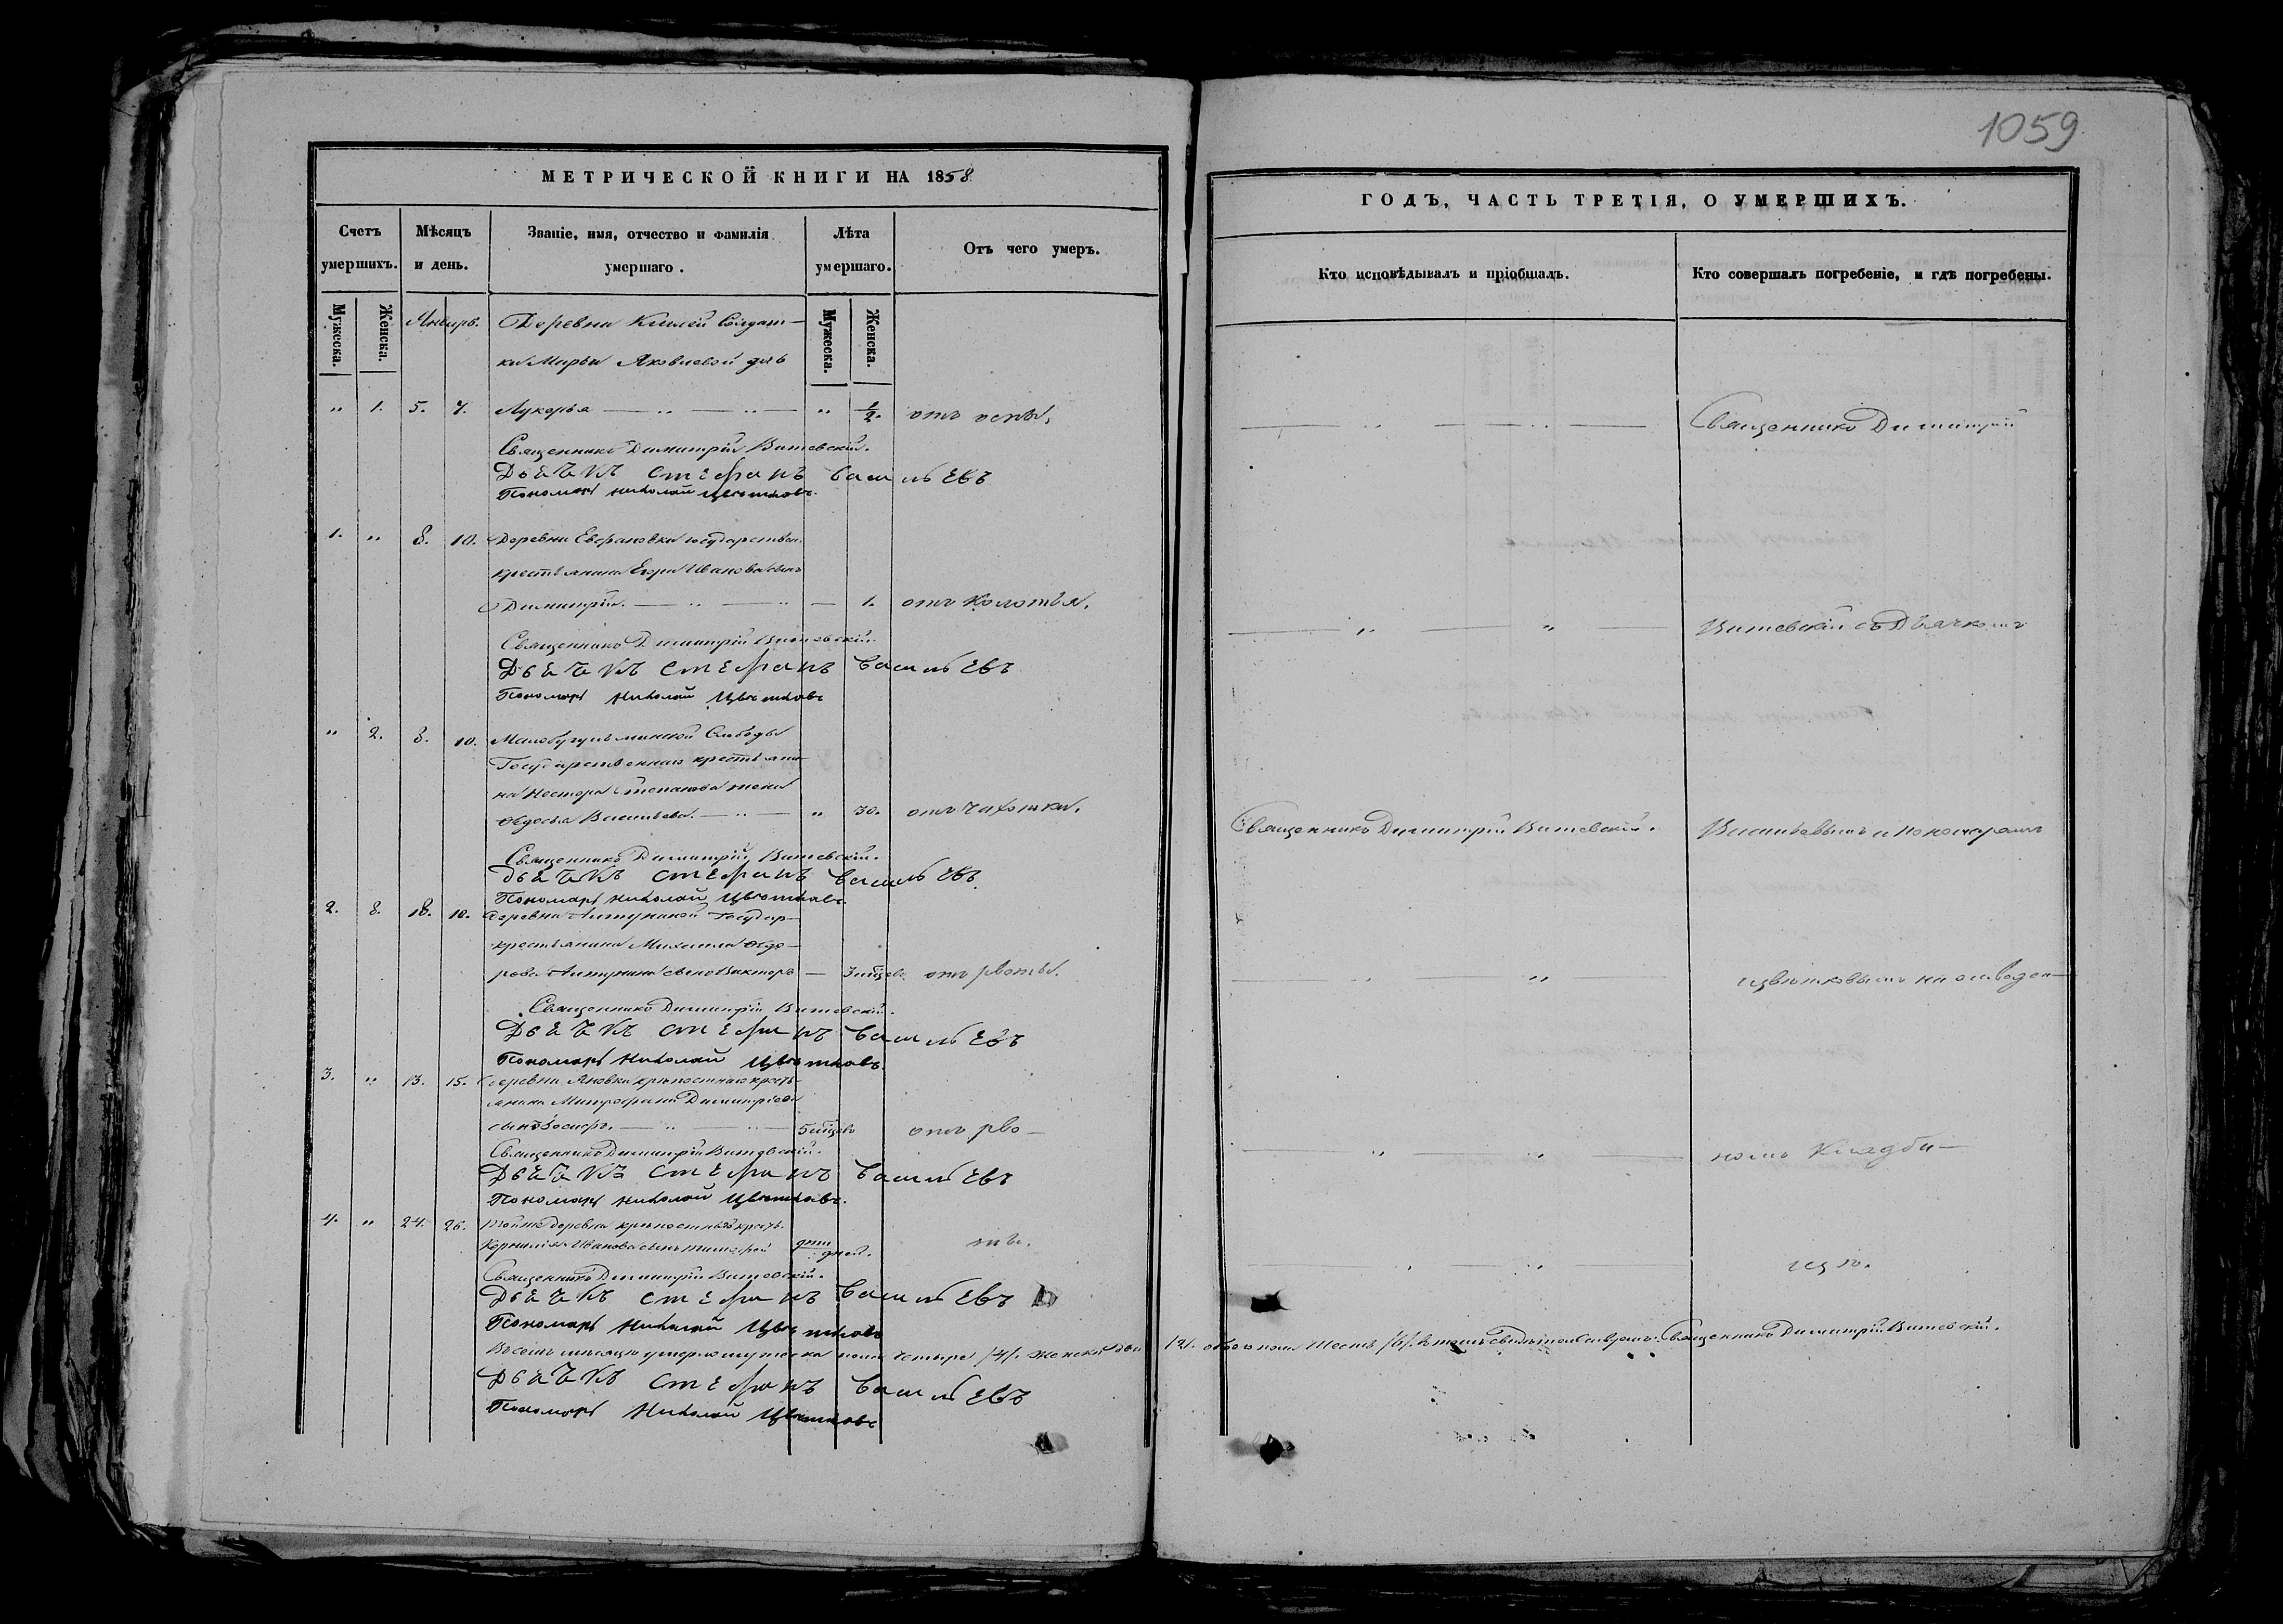 1059
МЕТРИЧЕСКОЙ КНИГИ НА 1858
ГОДЪ, ЧАСТЬ ТРЕТІЯ, О УМЕРШИХЪ.
Счетъ умершихъ.
Мѣсяцъ и день.
Званіе, имя, отчество и фамилія умершаго.
Лѣта умершаго.
Отъ чего умеръ.
Кто исповѣдывалъ и пріобщалъ.
Кто совершалъ погребеніе, и гдѣ погребены.
Мужеска.
Женска.
Январь.
Мужеска.
Женска.
Деревни Солдат-
ки Марьи Яковлевой дчь
„ 1. 5. 7. Лукерья — „ — „ — „ 1/2. отъ оспы.
Священникъ Димитрій
Священникъ Димитрій Витевскій.
Дьячкъ Стефанъ Васильевъ
Пономарь Николай Цвѣтковъ.
1. „ 8. 10. Деревни государствен.
крестьянина Егора Иванова сынъ
Димитрій. — „ — „ — 1. отъ колотья.
Витевскій съ Дьячкомъ
Священникъ Димитрій Витевскій.
Дьячкъ Стефанъ Васильевъ
Пономарь Николай Цвѣтковъ
„ 2. 8. 10. Слободы
Государственнаго крестьяни-
на Нестора Степанова жена
Ѳедосья Васильева. — „ — „ 30. отъ чахотки.
Священникъ Димитрій Витевскій.
Васильевымъ и пономаремъ
Священникъ Димитрій Витевскій.
Дьячкъ Стефанъ Васильевъ
Пономарь Николай Цвѣтковъ.
2. 8. 10. Деревни Государ-
крестьянина Михаила Ѳедо-
рова сынъ Викторъ — 3 отъ рвоты.
Цвѣтковымъ на отведен-
Священникъ Димитрій Витевскій.
Дьячкъ Стефанъ Васильевъ
Пономарь Николай Цвѣтковъ.
3. „ 13. 15. Деревни крѣпостнаго кресть-
янина Митрофана Димитріева
сынъ — „ — „ — 5 отъ рво-
номъ кладби-
Священникъ Димитрій Витевскій.
Дьячкъ Стефанъ Васильевъ
Пономарь Николай Цвѣтковъ.
4. „ 24. 26. Тойже деревни крест.
Иванова сынъ Тимофей дней.
ты.
щѣ.
Священникъ Димитрій Витевскій.
Дьячкъ Стефанъ Васильевъ
Пономарь Николай Цвѣтковъ
Въ семъ мѣсяцѣ умерло мужеска пола четыре /4/. женска два /2/. обоего пола шесть /6/. Въ томъ Священникъ Димитрій Витевскій.
Дьячкъ Стефанъ Васильевъ
Пономарь Николай Цвѣтковъ